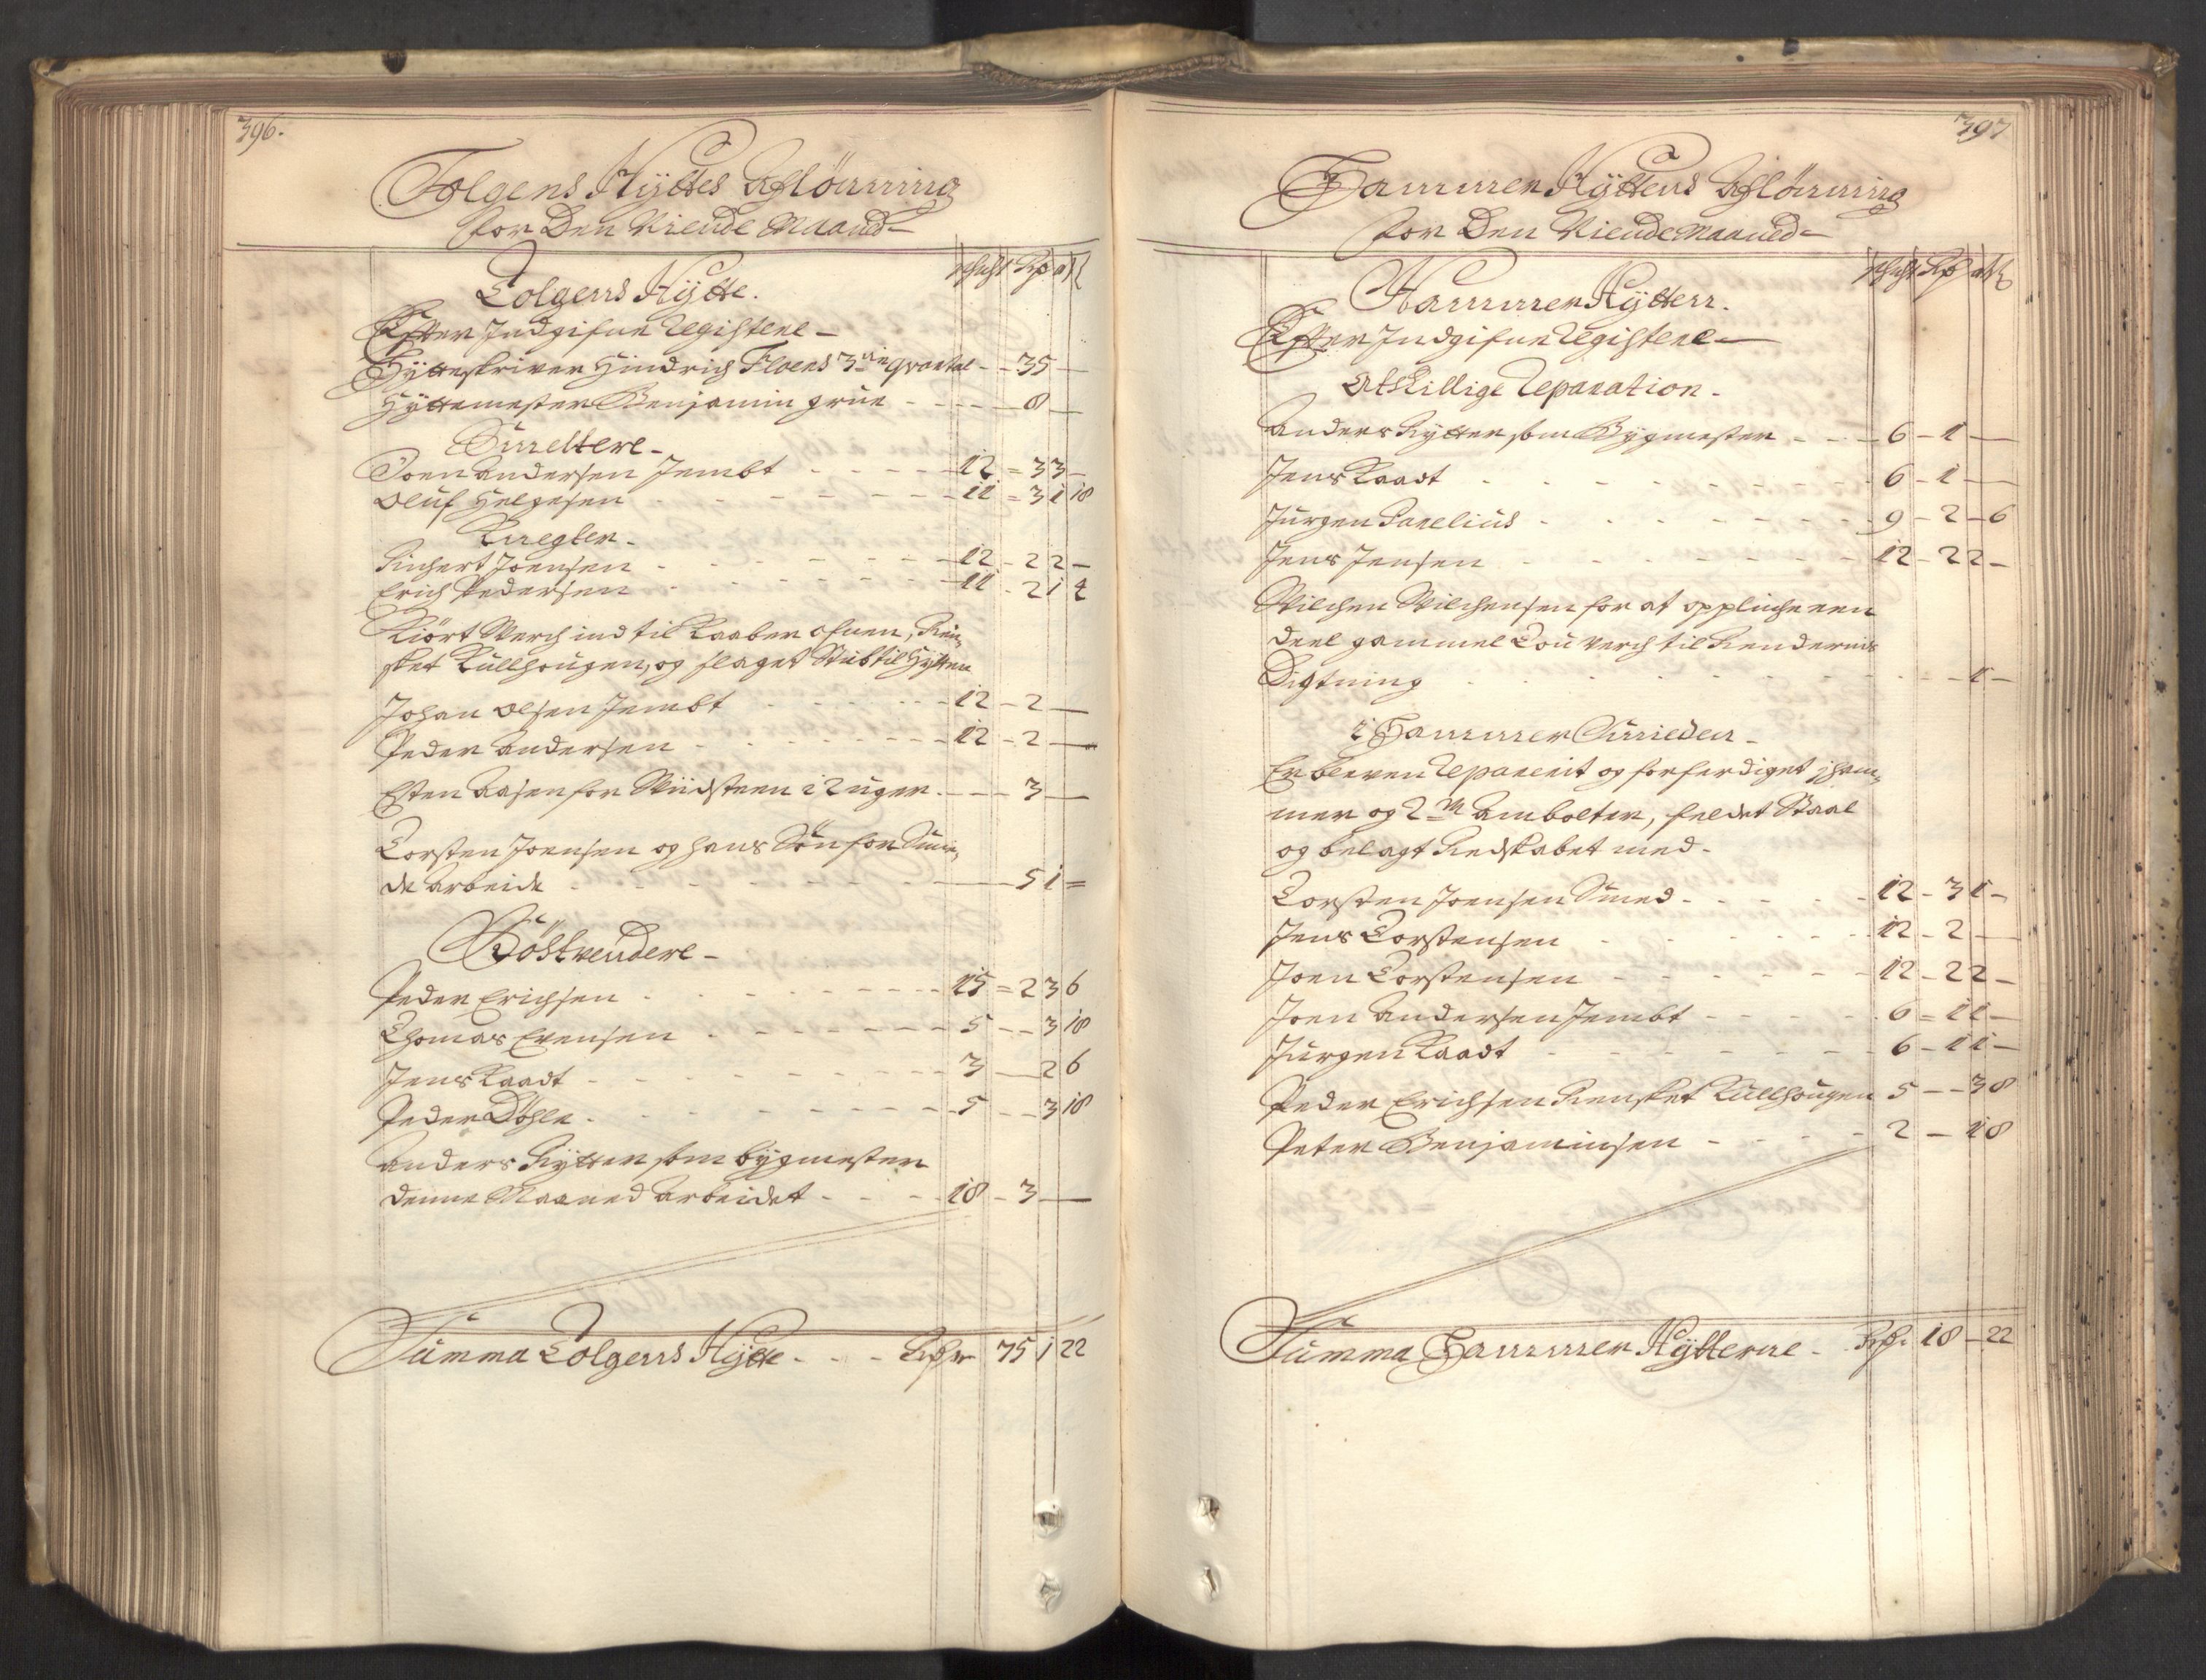 396.
Tolgens Hyttes Afflönning
for Den Niende Maaned
Schicht Rdr ort ß
Tolgens Hytte.
Efter Indgifne Registere
Hytteskriver Hindrich Floens 3die qvartal - - 35 —
Hyttemester Benjamin grüe - - - - 8 —
Smeltere
Joen Andersen Jembt - - - - 12 = 3 3 -
Oluf Helgesen - - - - 11 = 3 1 18
Knegter
Sichert Joensen - - - - 12 - 2 2 -
Erich Pedersen - - - - 11 - 2 1 4
Kiört Werch ind til Kaaber ofnen, Ren,
sket Kullhougen, og slaget Stüb til Hytten
Johan Olsen Jembt - - - - 12 - 2 —
Peder Andersen - - - - 12 - 2 —
Esten Aasen for Wiidsteen i 2 uger - - - 3 —
Torsten Joensen og hans Sön for Smee,
de Arbeide - - - - 5 1 =
Röstvendere
Peder Erichsen - - - - 15 = 2 3 6
Thomas Evensen - - - - 5 - - 3 18
Jens Kaadt - - - - 3 — 2 6
Peder Döhle - - - - 5 - - 3 18
Anders Rytter som bygmester
denne Maaned Arbeidet - - - 18 - 3 —
Summa Tolgens Hytte - - - Rdr 75 1 22
397
Hammer Hyttens Afflönning
for Den Niende Maaned
Schicht Rdr ort ß
Hammer Hytten.
Efter Indgifne Registere
Atskillige Reparation
Anders Rytter som Bygmester - - - 6 - 1 —
Jens Kaadt - - - - 6 - 1 —
Jürgen - - - - 9 - 2 - 6
Jens Jensen - - - - 12 - 2 2 -
Wilchen Wilchensen for at opplüche een
deel gammel Tou verch til Rendernis
Digtning - - - - 1 -
i Hammer Smieden
Er bleven Reparerit og forferdiget j ham,
mer og 2de Ambolter, feldet Staal
og belagt Redskabet med
Torsten Joensen Smed - - - - 12 - 3 1 -
Jens Torstensen - - - - 12 - 2 —
Joen Torstensen - - - - 12 - 2 2 -
Joen Andersen Jembt - - - - 6 = 1 1 -
Jürgen Kaadt - - - - 6 - 1 1 -
Peder Erichsen Rensket Kullhougen 5 - - 3 8
Peter Benjaminsen - - - - 2 - 1 8
Summa Hammer Hytterne - Rdr. 18 - 22